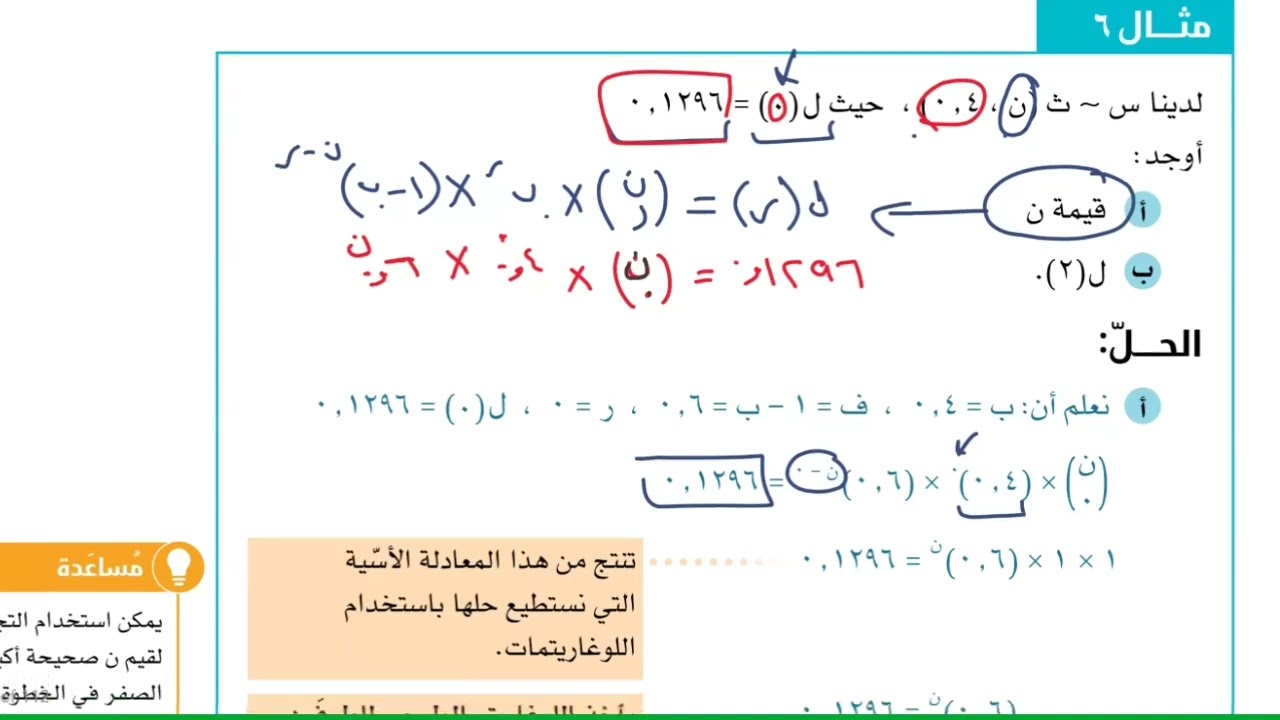 مثال ٦
لدينا س ~ ث (ن، ٠,٤)، حيث ل(٠) = ٠,١٢٩٦
أوجد:
أ قيمة ن
ل(ر) = (ن ر) × ب^ر × (١-ب)^ن-ر
٠,١٢٩٦ = (ن ٠) × ٠,٤^٠ × ٠,٦^ن
ب ل(٢).
الحلّ:
أ نعلم أن: ب = ٠,٤ ، ف = ١ - ب = ٠,٦ ، ر = ٠ ، ل(٠) = ٠,١٢٩٦
(ن ٠) × (٠,٤)^٠ × (٠,٦)^ن-٠ = ٠,١٢٩٦
١ × ١ × (٠,٦)^ن = ٠,١٢٩٦
تنتج من هذا المعادلة الأسّية
التي نستطيع حلها باستخدام
اللوغاريتمات.
(٠,٦)^ن = ٠,١٢٩٦
مُساعَدة
يمكن استخدام
لقيم ن صحيحة
الصفر في الخطوة